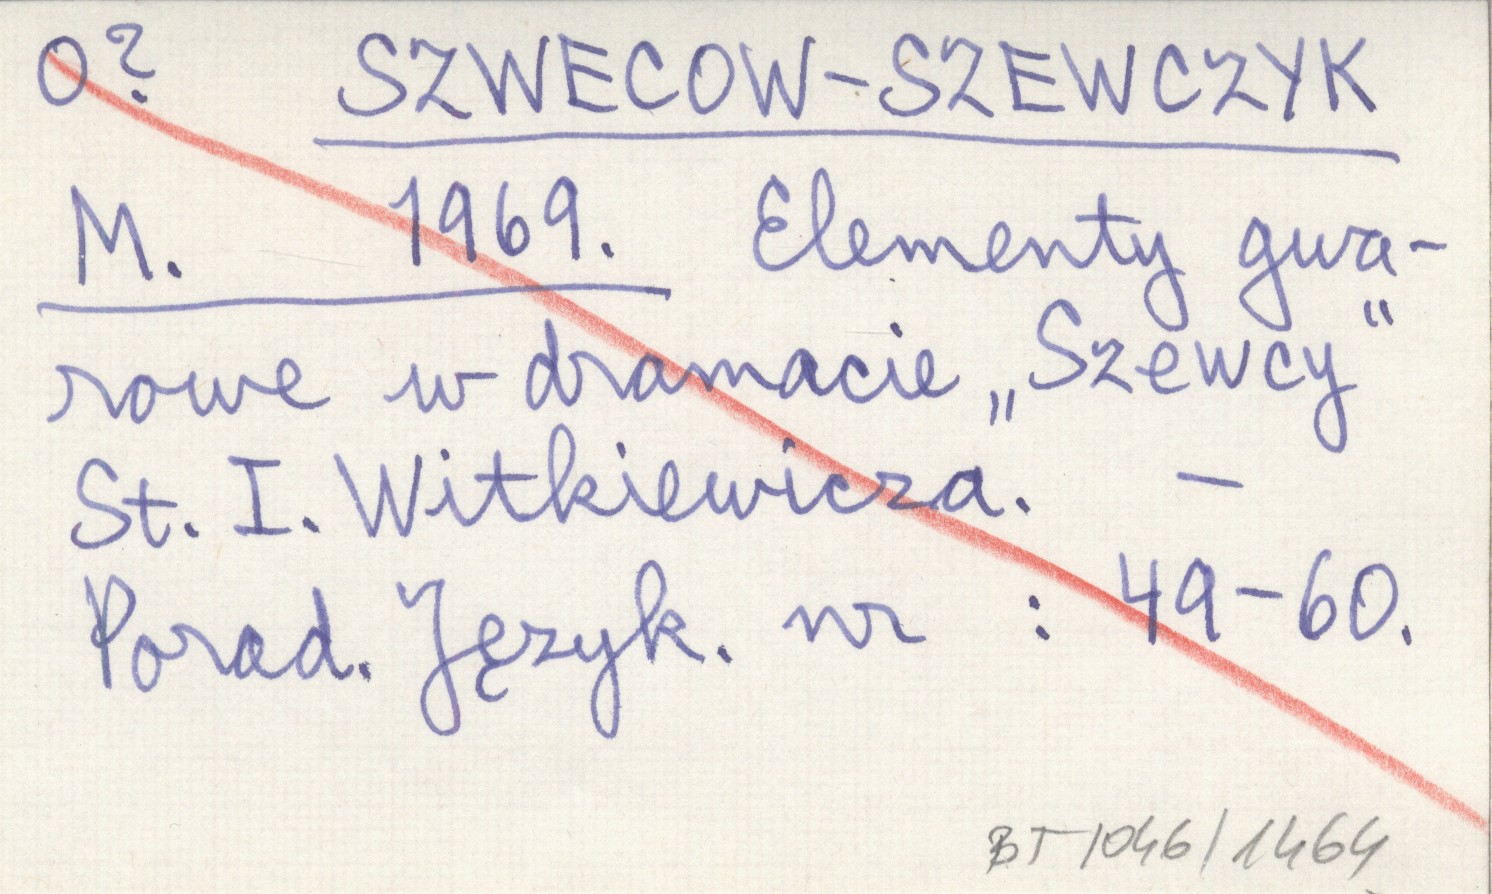 O? SZWECOW-SZEWCZYK
M. 1969. Elementy gwa-
rowe w dramacie „Szewcy"
St. I. Witkiewicza. –
Porad. Język. nr : 49-60.
BT-1046/1464